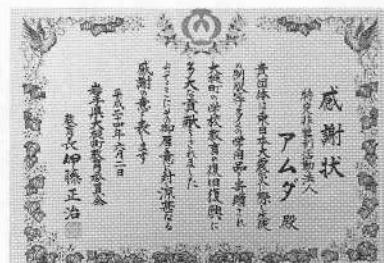 感謝状
特定非営利活動法人
アムダ 殿
貴団体は東日本大震災に際し生徒
の制服等多くの学用品を寄贈され
大槌町の学校教育の復旧復興に
多大な貢献をされました
よってここにその御厚意に対し深甚なる
感謝の意を表します
平成二十四年六月二日
岩手県大槌町教育委員会
教育長 伊藤正治